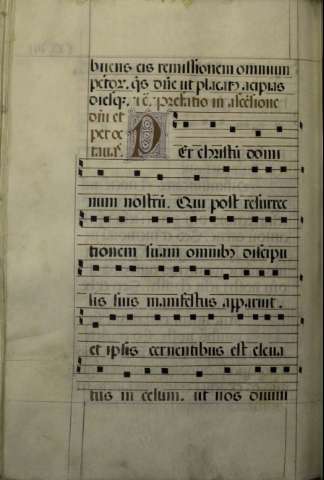 buens eis remissionem omnium
petoꝝ. q̄s dn̄e ut placatꝰ acipias
diesqꝫ. i
p̄phatio in asc̄sione
dn̄i et
per oc
tauā.
P
Er christū domi
num nostrū. Qui post resurrec
tionem suam omnibꝰ discipu
lis suis manifestus apparuit.
et ipsis cernentibus est eleua
tus in celum. ut nos diuini